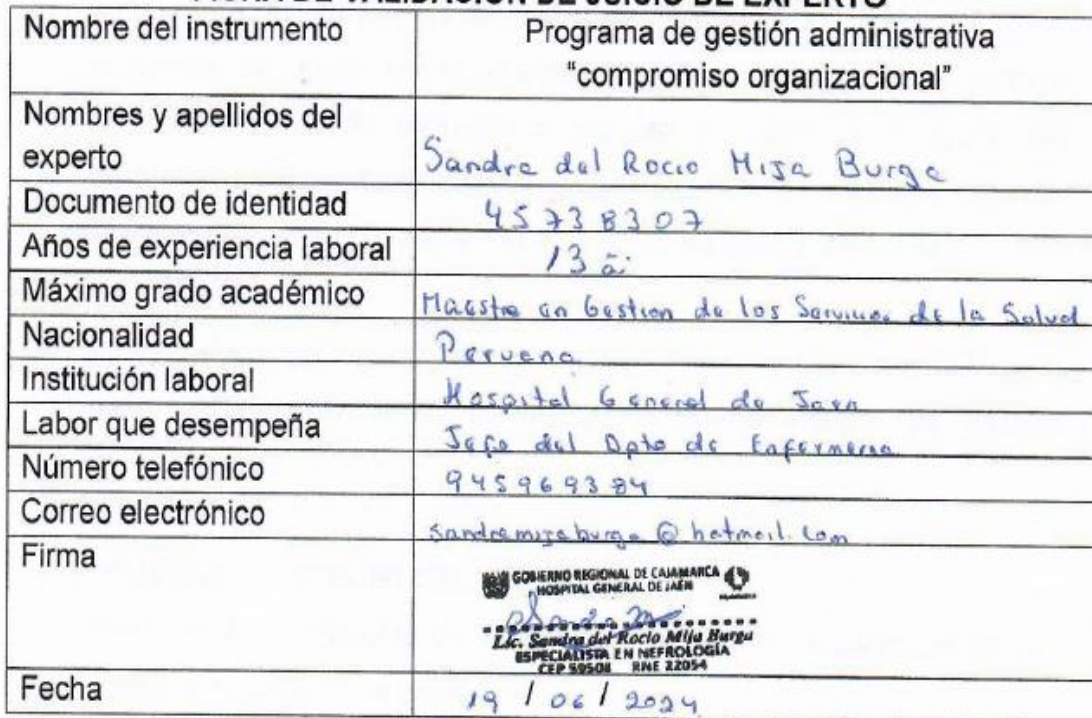 FICHA DE VALIDACIÓN DE JUICIO DE EXPERTO
Nombre del instrumento
Programa de gestión administrativa
“compromiso organizacional”
Nombres y apellidos del
experto
Sandra del Rocio Mija Burga
Documento de identidad
45738307
Años de experiencia laboral
13 a
Máximo grado académico
Maestra en Gestion de los Servicios de la Salud
Nacionalidad
Peruana
Institución laboral
Hospital General de Jaen
Labor que desempeña
Jefe del Dpto de Enfermeria
Número telefónico
945969384
Correo electrónico
sandramijaburga@hotmail.com
Firma
GOBIERNO REGIONAL DE CAJAMARCA
HOSPITAL GENERAL DE JAÉN
Lic. Sandra del Rocío Mija Burga
ESPECIALISTA EN NEFROLOGÍA
CEP 59508 RNE 22054
Fecha
19 / 06 / 2024